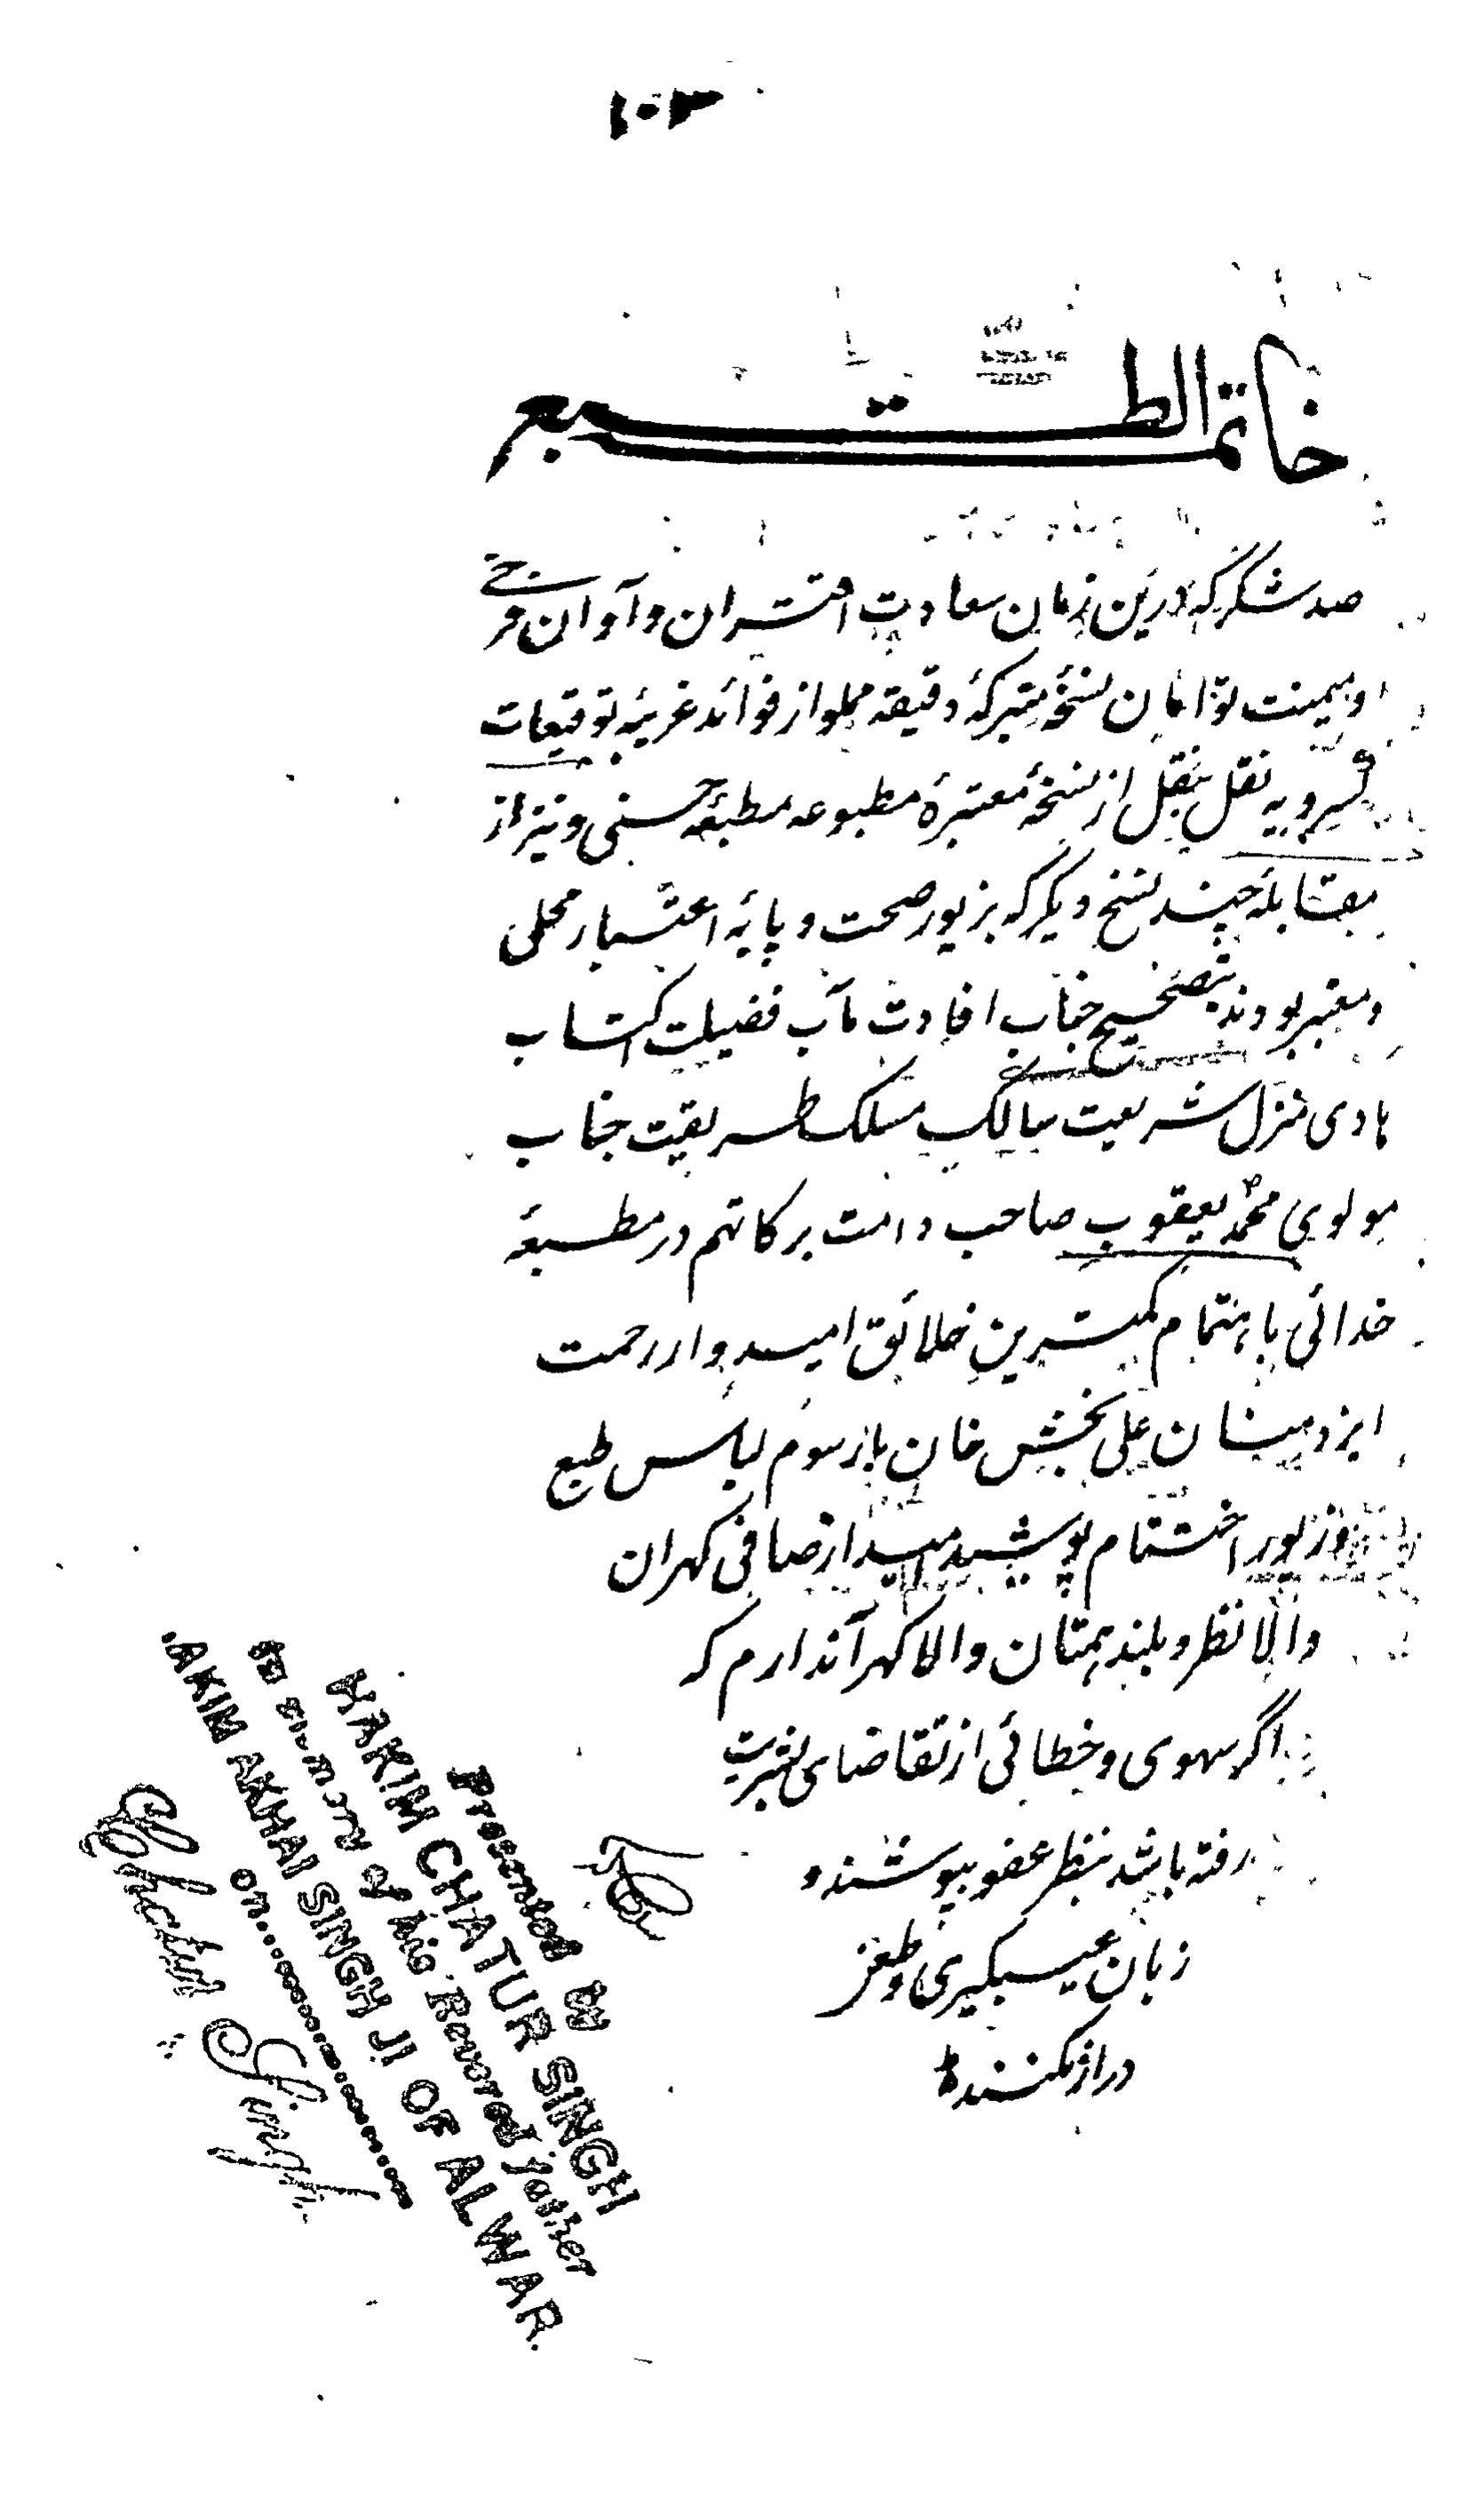 ۱۰۳
خاتمة الطبع
صد شکر که درین زمان سعادت اقتران و آوان فرخی
و یمینت توامان نسخۀ متبرکۀ دقیقه مملو از فوائد غریبۀ توقیعات
کسرویه نقل بنقل از نسخۀ معتبرۀ مطبوعه مطبعۀ حسنی و نیز از
مقابلۀ چند نسخ دیگر که بزیور صحت و پایۀ اعتبار محلی
و معتبر بودند بتصحیح جناب افادت مآب فضیلت اکتساب
هادی منزل شریعت سالک مسلک طریقت جناب
مولوی محمد یعقوب صاحب دامت برکاتهم در مطبعۀ
خدائی باهتمام کمترین خلائق امیدوار رحمت
ایزد منان علی بخش خان بازسوم لباس طبع
وزیور اختتام پوشید امید از صافی گهران
والا نظر و بلند همتان والا گهر آندارم که
اگر سهوی و خطائی از تقاضای بشریت
رفته باشد بنظر عفو بپوشند و
زبان عیبگیری و طعن
دراز نکنند
Presented by
HAKIM CHATUR SINGH
in memory of his Revered father
HAKIM AKHAI SINGH JI OF ALWAR.
on
Chatur Singh